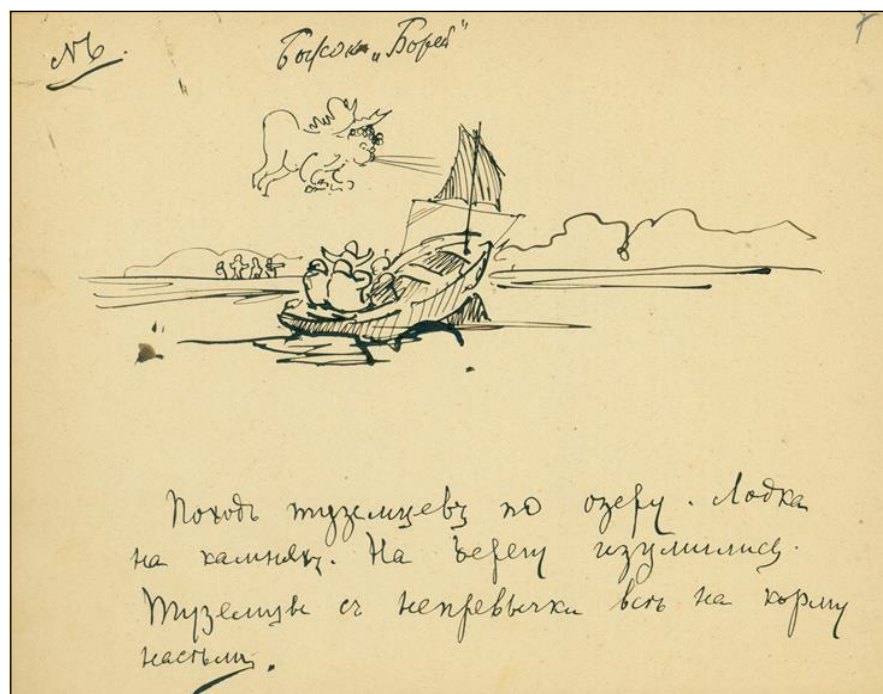 №6.
Бычокъ „Борей“
7
Походъ туземцевъ по озеру. Лодка
на камняхъ. На берегу изумились.
Туземцы съ непревычки всѣ на корму
насѣли.